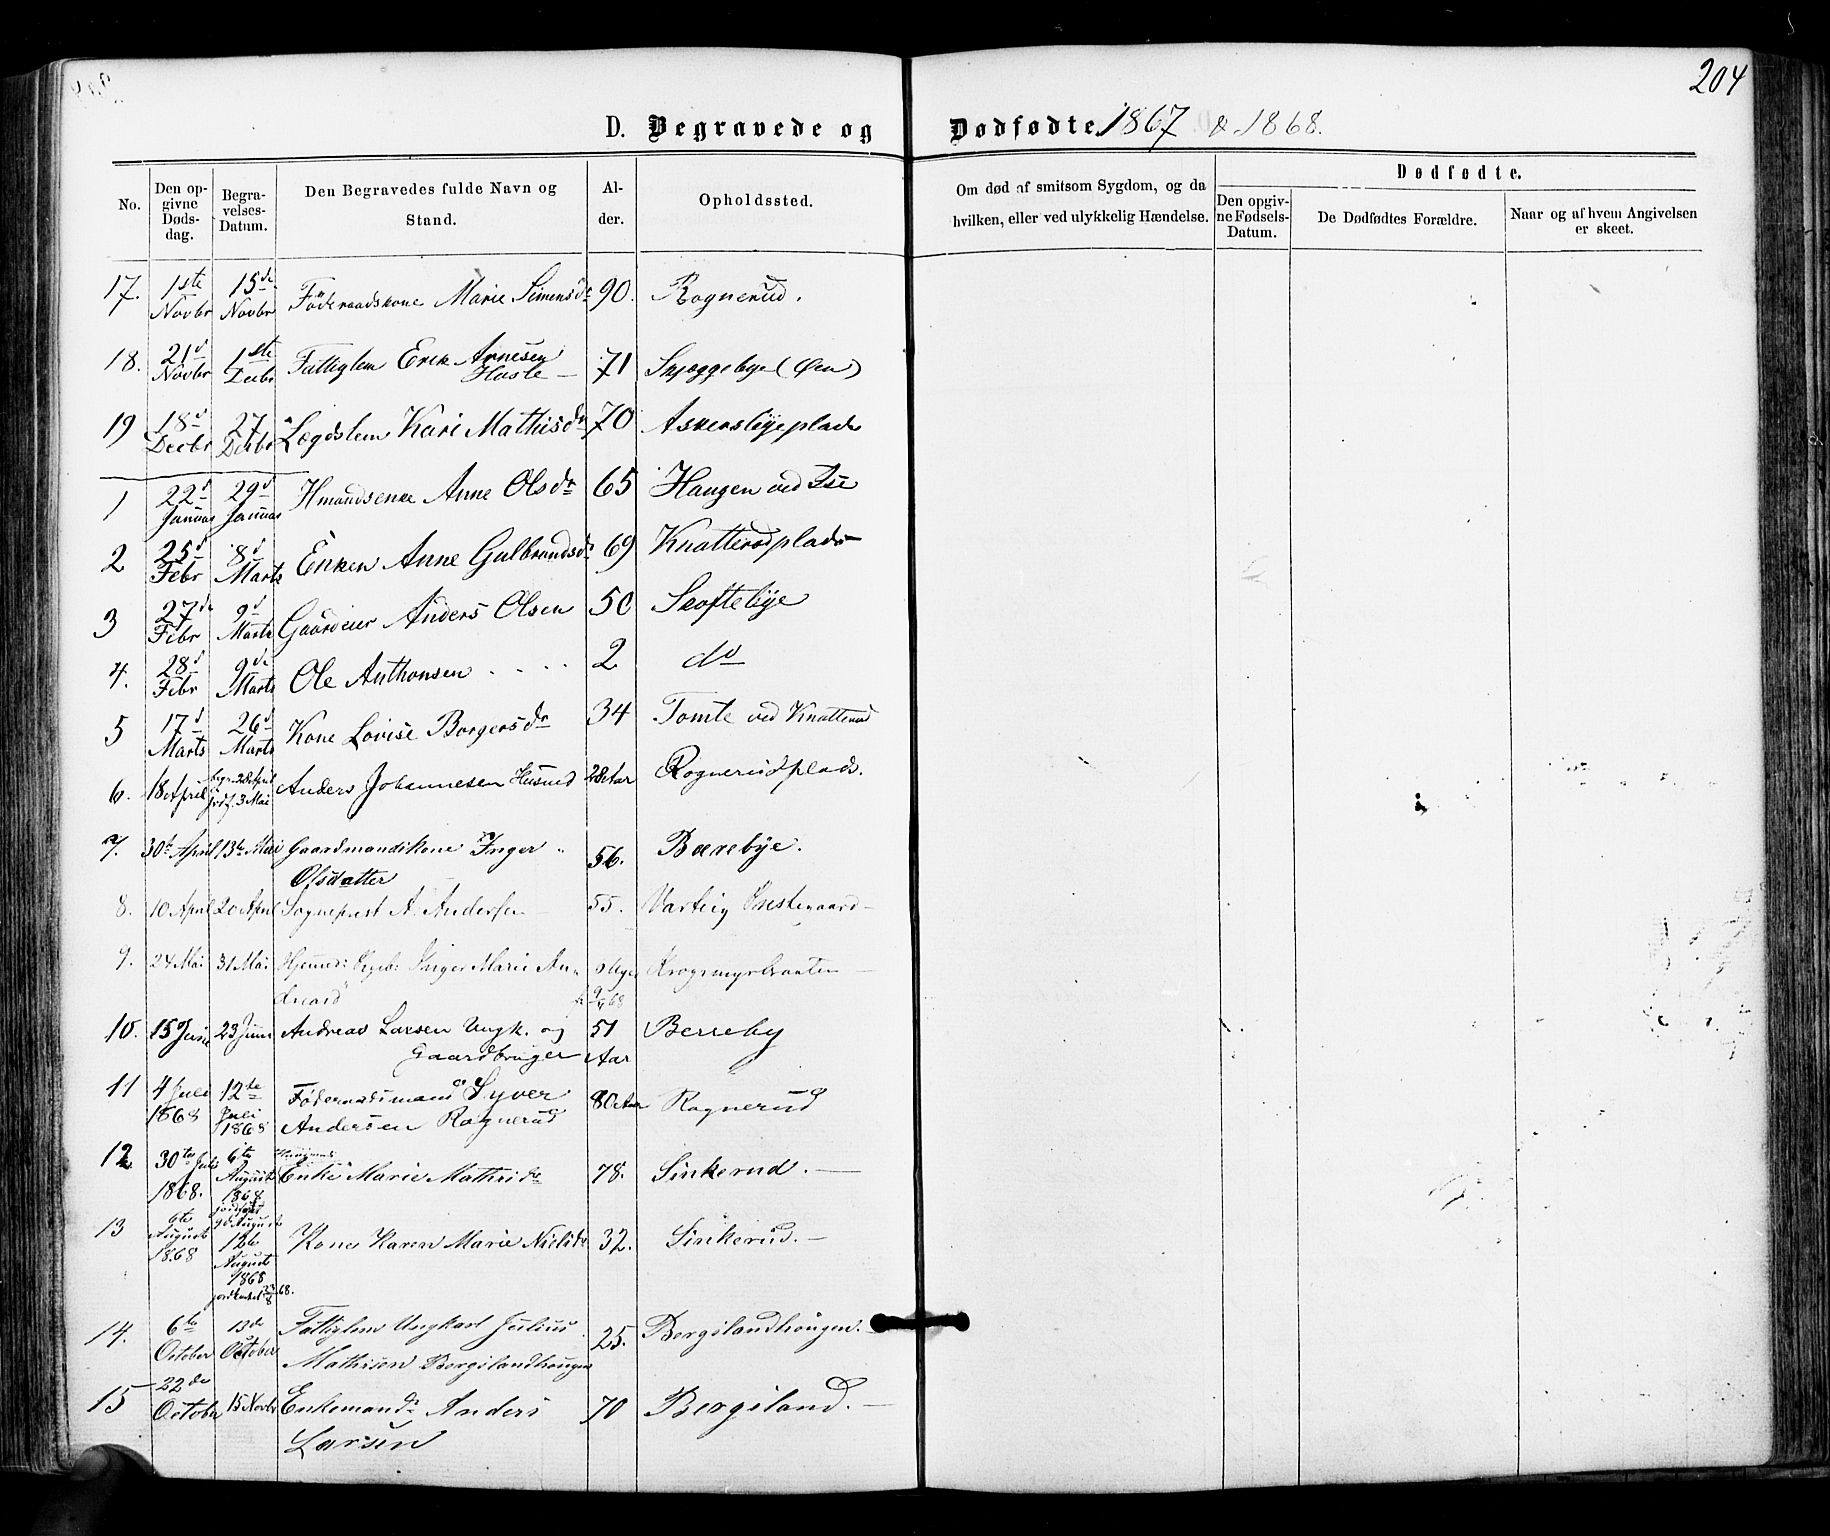 204
D. Begravede og Dødfødte 1867 & 1868.
No.
Den opgivne Dødsdag.
Begravelses-Datum.
Den Begravedes fulde Navn og Stand.
Alder.
Opholdssted.
Om død af smitsom Sygdom, og da hvilken, eller ved ulykkelig Hændelse.
Dødfødte.
Den opgivne Fødsels-Datum.
De Dødfødtes Forældre.
Naar og af hvem Angivelsen er skeet.
17. 1ste Novbr 15de Novbr Føderaadskone Marie Simensdr 90. Rognerud.
18. 21d Novbr 1ste Decbr Fattiglem Erik Arnesen Hasle 71 Skjeggebye (Øen)
19 18d Decbr 27 Decbr Lægdslem Kari Mathisdr 70 Askersbyeplads
1 22d Januar 29d Januar Hmandsenke Anne Olsdr 65 Haugen ved Ise
2 25d Febr 8d Marts Enken Anne Gulbrandsdr 69 Knatterødplads
3 27de Febr 9d Marts Gaardeier Anders Olsen 50 Skoftebye
4. 28d Febr 9de Marts Ole Anthonsen 2 do
5 17d Marts 26d Marts Kone Lovise Borgersdr 34 Tomte ved Knatterød
6. 18 April begr. 28 April jordf. 3 Mai Anders Johannesen 28 Aar Rognerudplads.
7. 30te April 13de Mai Gaardmandskone Inger Olsdatter 56. Berebye.
8. 10 April 20 April Sognepræst A. Andersen 55. Varteig Præstegaard
9. 24 Mai 31 Mai Inger Marie Andreasd
10. 15 Juni 23 Juni Andreas Larsen Ungk. og Gaardbruger 51 Aar Berreby
11 4 Juli 1868 12te Juli 1868 Føderaadsmand Syver Andersen Rognerud 80 Aar Rognerud
12 30te Juli 1868. 6te August 1868 Enke Marie Mathisdr 78. Sinkerud.
13 6te August 1868 12te August 1868 Kone Karen Marie Nielsdr 32. Sinkerud.
14. 6te October 13de October Fattiglem Ungkarl Julius Mathisen Bergslandhougen 25. Bergslandhougen.
15 22de October 15 Novbr Enkemand Anders Larsen 70 Bergsland.